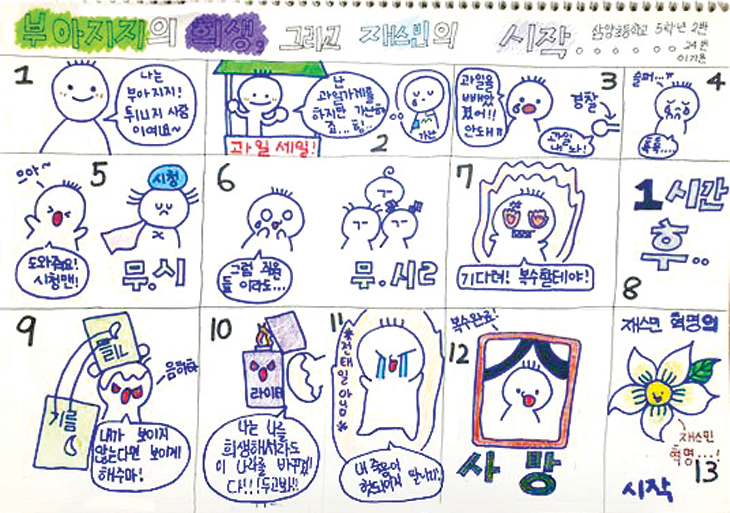 부아지지의 희생, 그리고 재스민의 시작......
삼양초등학교 5학년 2반
24번
이기윤
1
나는
부아지지!
튀니지 사람
이여요~
2
난
과일가게를
하지만 가난하
죠...힝..
가난
과일 세일!
3
과일을
빼앗
겼어!!
안돼ㅠ
경찰
과일
내놔!
4
슬퍼..ㅠ
흑흑...
5
으아~
도와줘요!
시청맨!
시청
무.시
6
그럼 직원
들 이라도...
무.시2
7
기다려! 복수할테야!
1시간
후..
8
9
기름
기름
음하하
내가 보이지
않는다면 보이게
해주마!
10
라이터
나는 나를
희생해서라도
이 나라를 바꾸겠
다!!!두고봐!!
11
*전태일 아님*
내 죽음이
헛되이지 말기기!
12
복수완료!
사 망
재스민 혁명의
재스민
혁명...!
13
시작